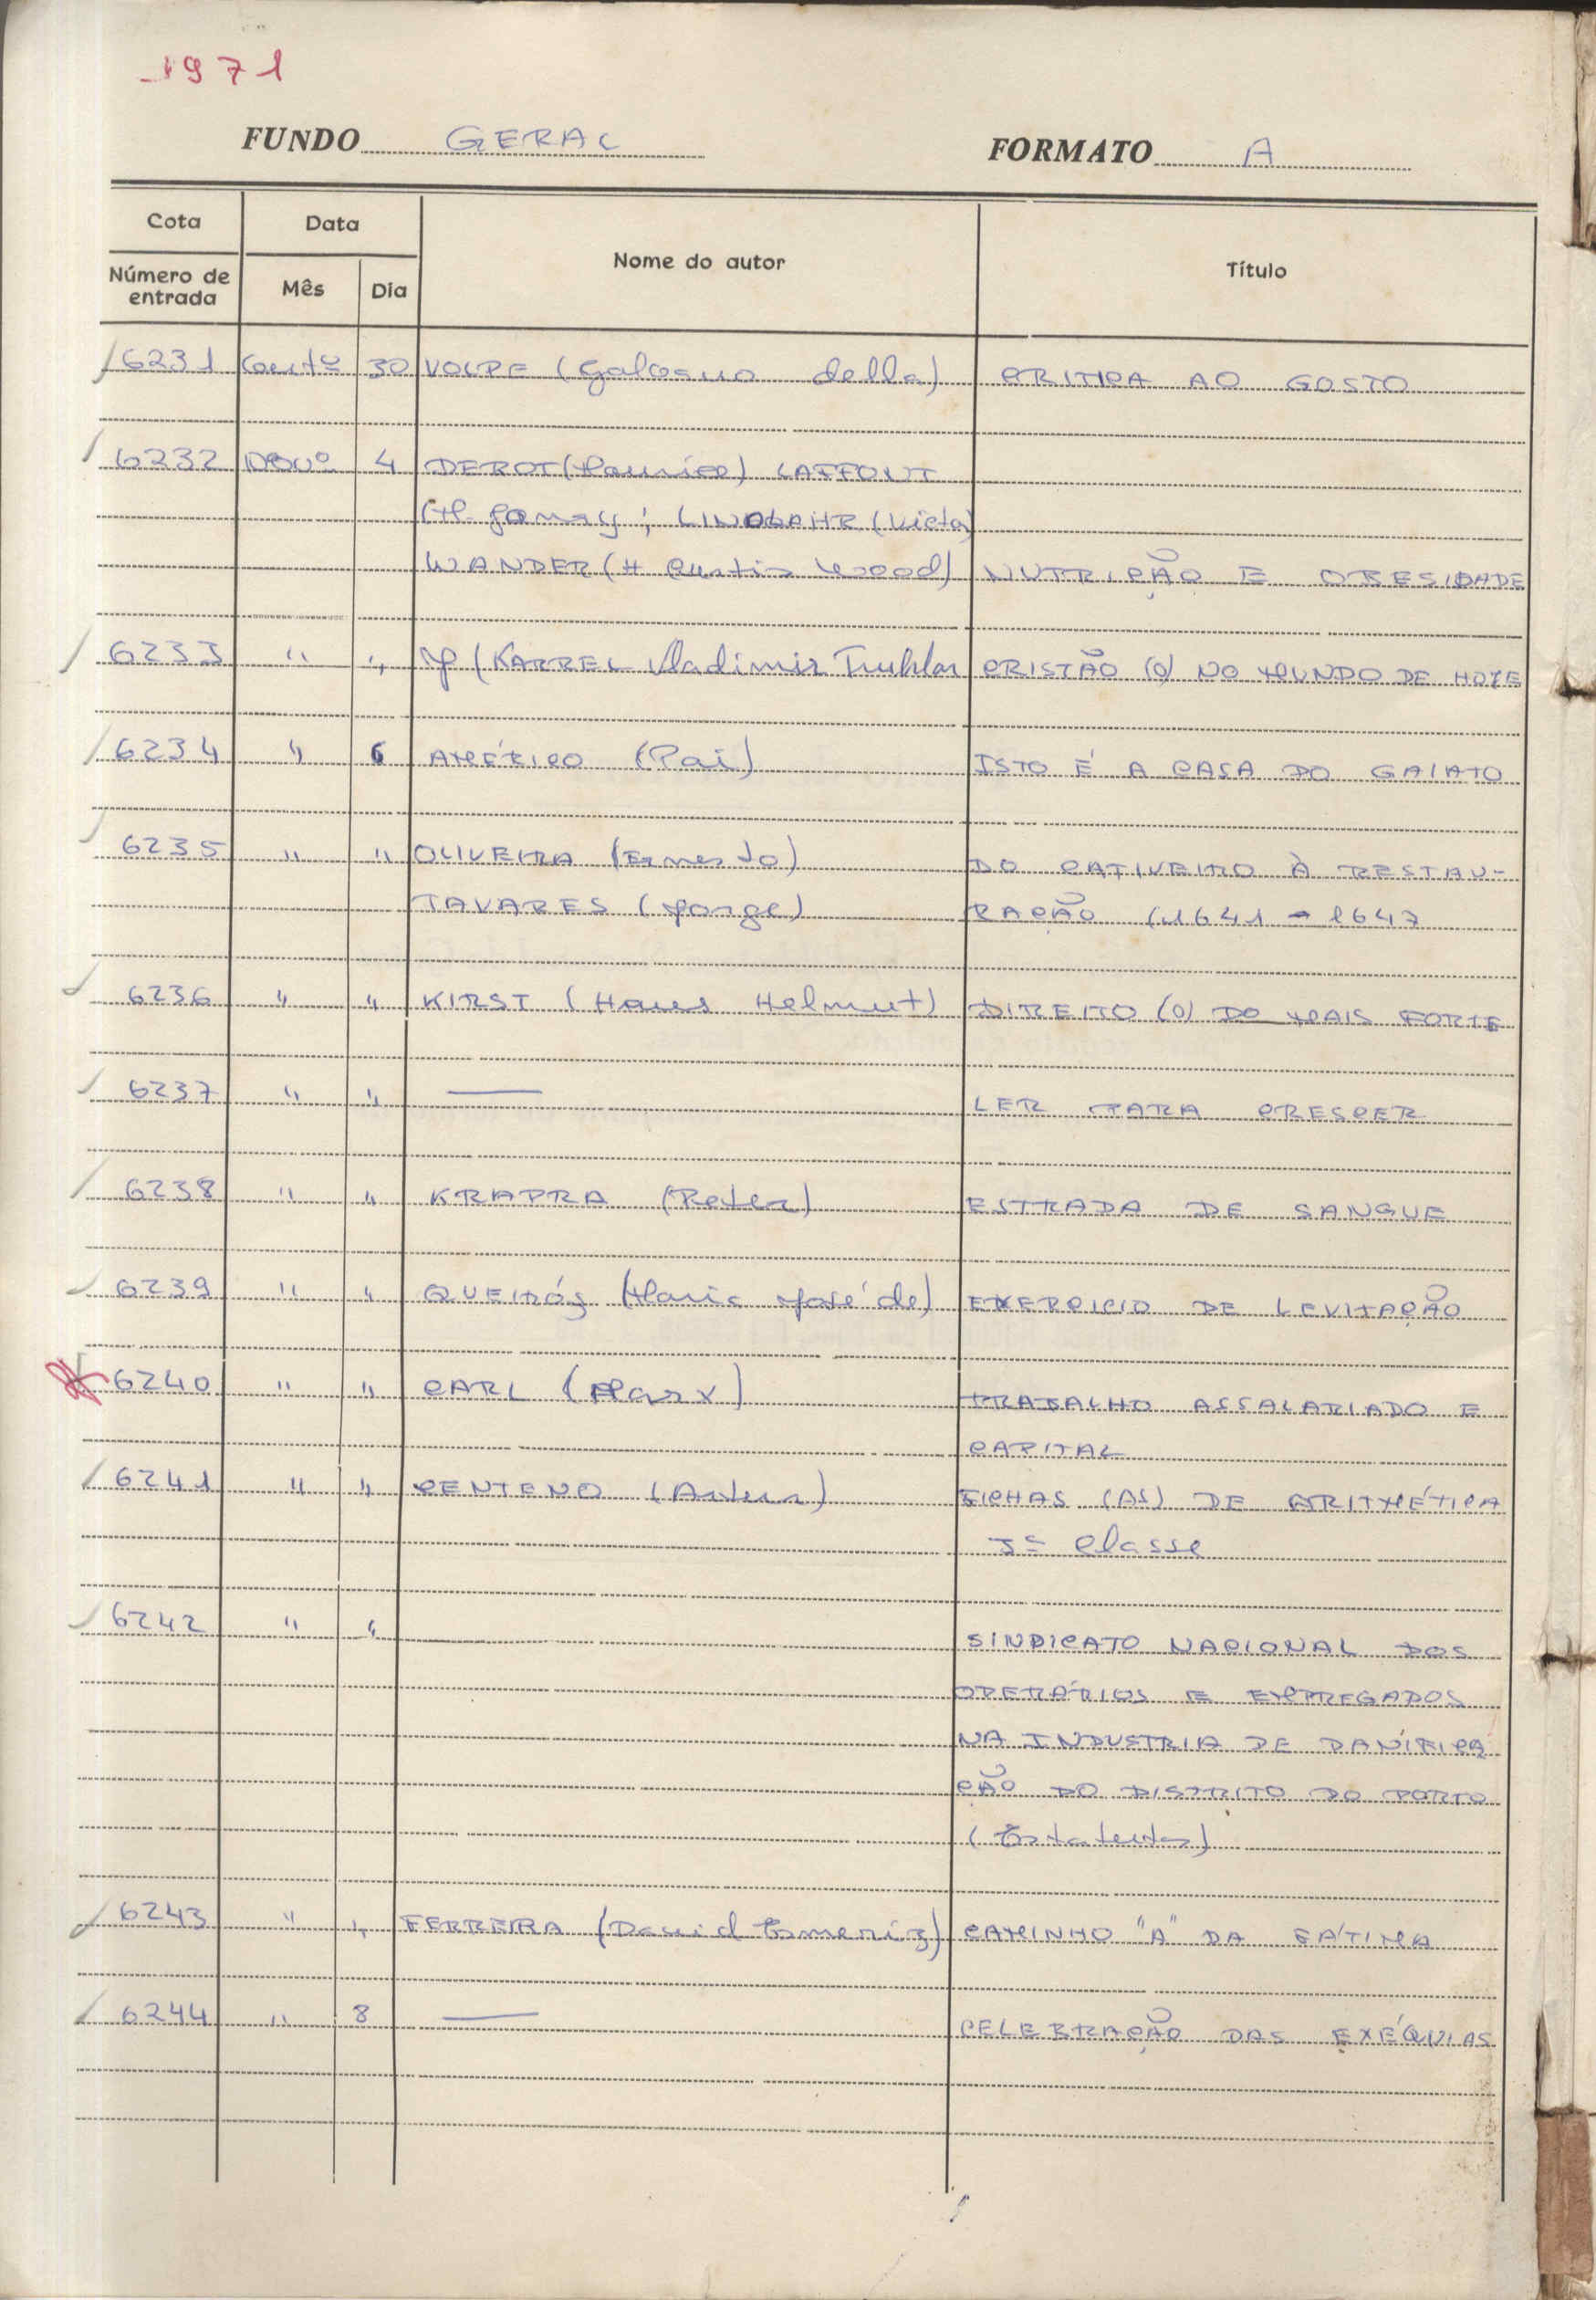 1971
FUNDO GERAL FORMATO A
Cota Data Nome do autor Título
Número de entrada Mês Dia
6231 30 VOLPE (Galvano della) CRITICA AO GOSTO
6232 4 DEROT (Maurice) LAFFONT
LINDLAHR (Victor)
WANDER (H Curtis Wood) NUTRIÇÃO E OBESIDADE
6233 " " (KARREL Vladimir Truhlar CRISTÃO (O) NO MUNDO DE HOJE
6234 " 6 AMÉRICO (Pai) ISTO É A CASA DO GAIATO
6235 " " OLIVEIRA (Ernesto) DO CATIVEIRO À RESTAU-
TAVARES (Jorge) RAÇÃO (1641 - 1647
6236 " " KIRST (Hans Helmut) DIREITO (O) DO MAIS FORTE
6237 " " — LER PARA CRESCER
6238 " " KRAPRA (Peter) ESTRADA DE SANGUE
6239 " " QUEIRÓS (Maria José de) EXERCICIO DE LEVITAÇÃO
6240 " " CARL (Marx) TRABALHO ASSALARIADO E
CAPITAL
6241 " " CENTENO (Artur) FICHAS (AS) DE ARITMÉTICA
3ª Classe
6242 " " SINDICATO NACIONAL DOS
OPERÁRIOS E EMPREGADOS
NA INDUSTRIA DE PANÍFICA
ÇÃO DO DISTRITO DO PORTO
(Estatutos)
6243 " " FERREIRA (David Esmeriz) CAMINHO "A" DA FÁTIMA
6244 " 8 — CELEBRAÇÃO DAS EXÉQUIAS